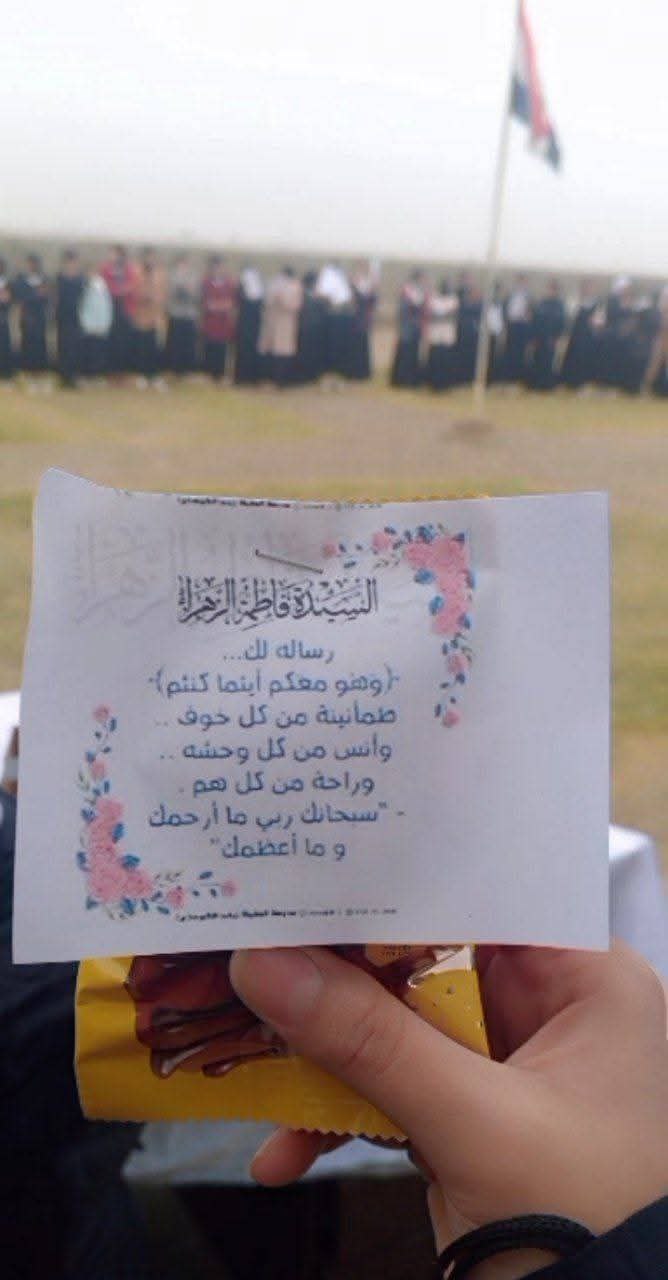 السيدة فاطمة الزهراء
رساله لك...
-(وَهُوَ معكم أينما كنتم)-
طمأنينة من كل خوف ..
وأنس من كل وحشه ..
وراحة من كل هم .
- "سبحانك ربي ما أرحمك
و ما أعظمك"